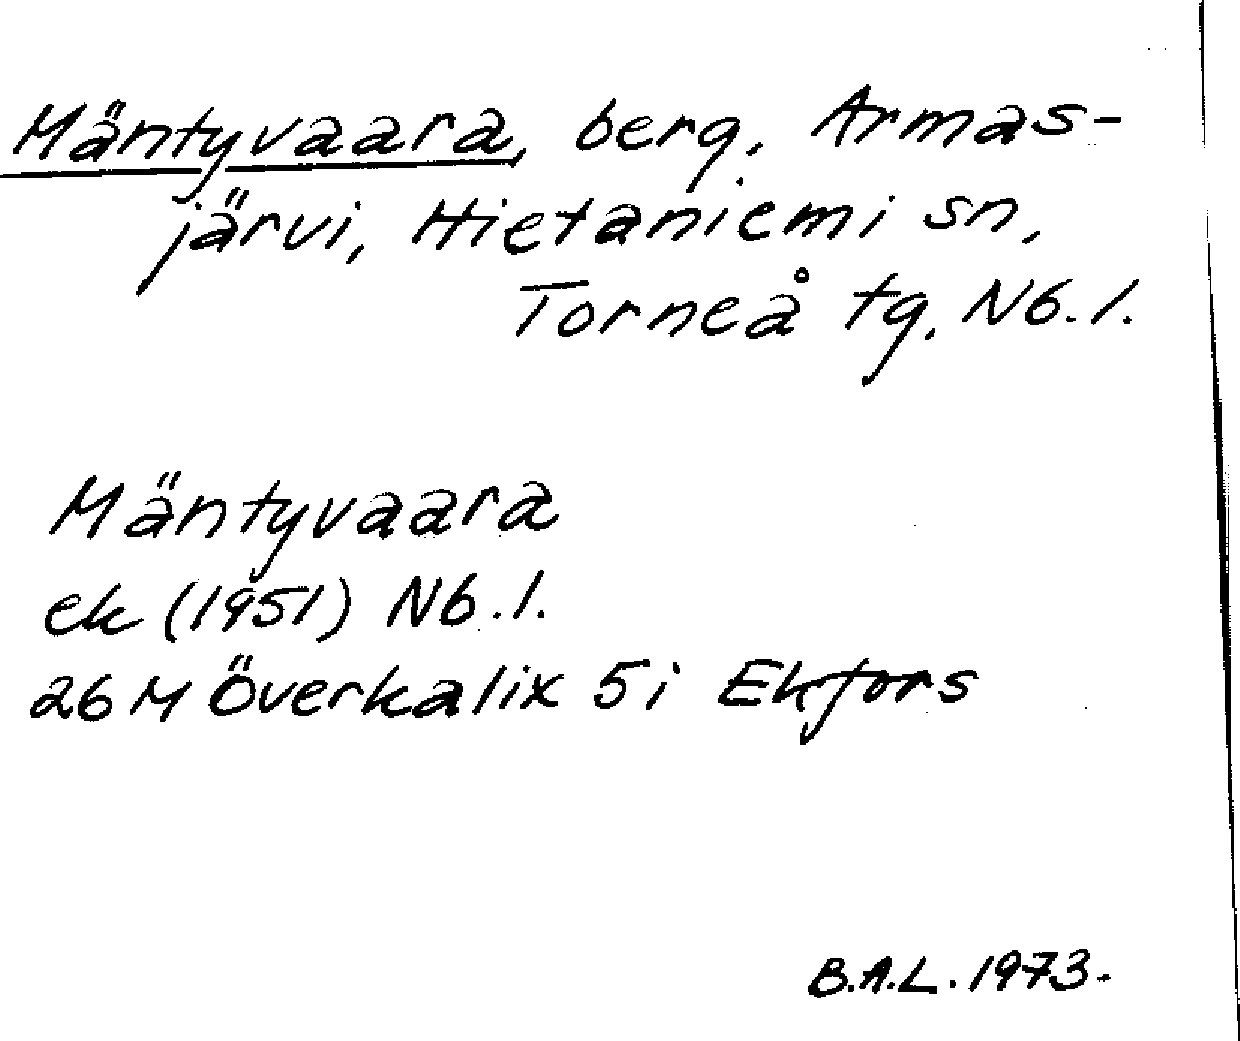 Mäntyvaara, berg, Armas-
järvi, Hietaniemi sn,
Torneå tg. Nb.l.
Mäntyvaara
ek (1951) Nb.l.
26 M Överkalix 5i Ekfors
B.A.L. 1973.